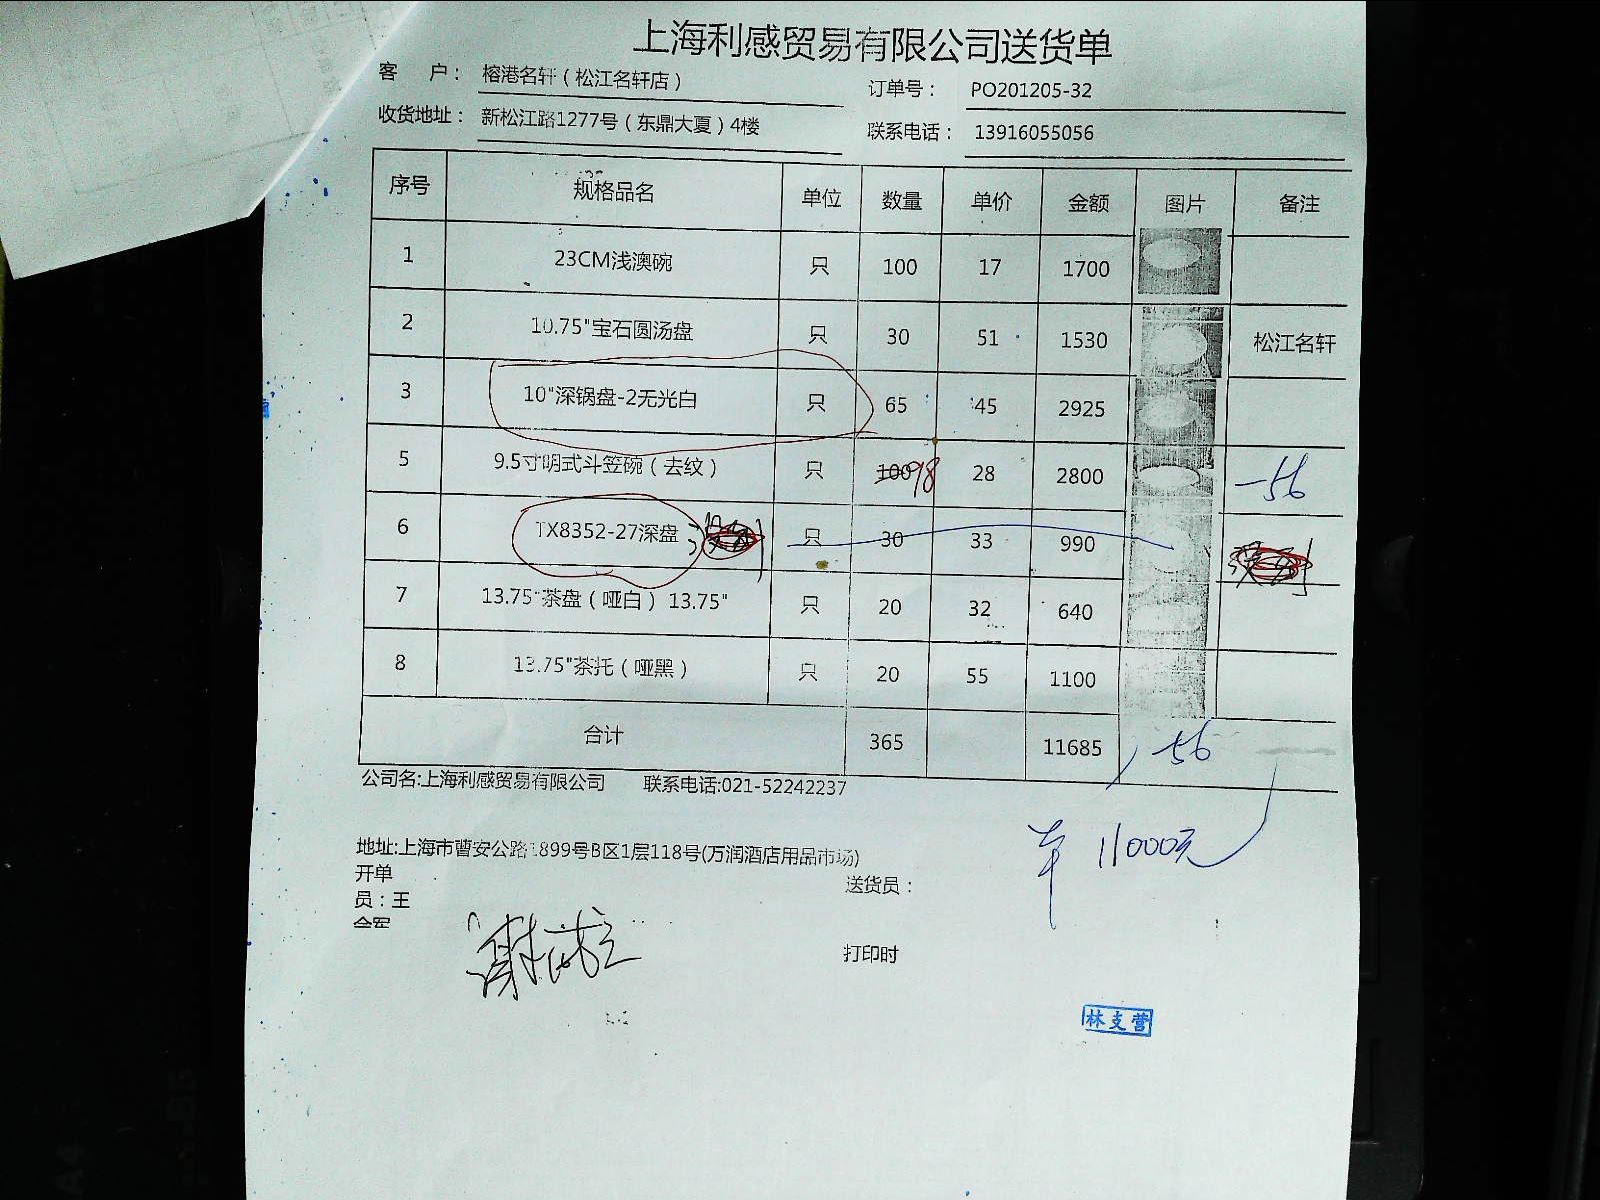 上海利感贸易有限公司送货单
客 户： 榕港名轩（松江名轩店） 订单号： PO201205-32
收货地址： 新松江路1277号（东鼎大夏）4楼 联系电话： 13916055056
序号 规格品名 单位 数量 单价 金额 图片 备注
1 23CM浅澳碗 只 100 17 1700
2 10.75"宝石圆汤盘 只 30 51 1530 松江名轩
3 10"深锅盘-2无光白 只 65 45 2925
5 9.5寸明式斗笠碗（去纹） 只 100 98 28 2800 -56
6 TX8352-27深盘 只 30 33 990
7 13.75"茶盘（哑白）13.75" 只 20 32 640
8 13.75"茶托（哑黑） 只 20 55 1100
合计 365 11685 -56
公司名:上海利感贸易有限公司 联系电话:021-52242237
11000元
地址:上海市曹安公路1899号B区1层118号(万润酒店用品市场)
开单 送货员：
员：王
会军
打印时
林支营